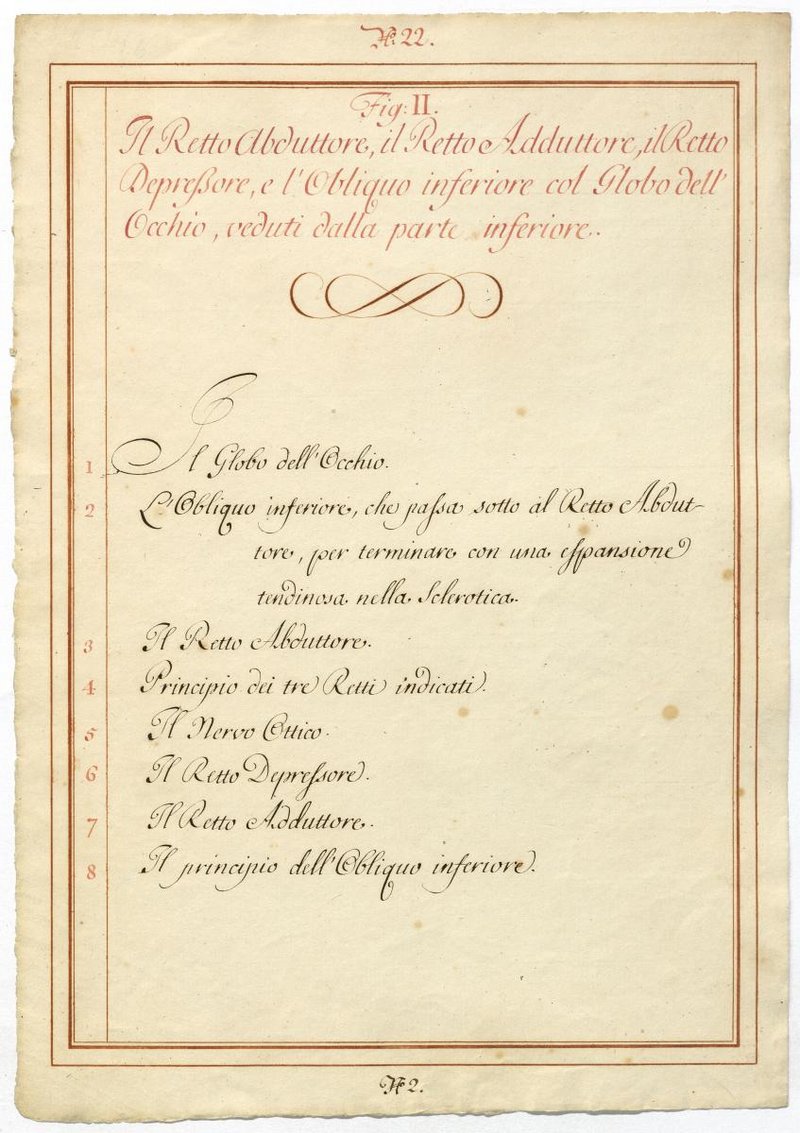 N. 22.
Fig: II.
Il Retto Abduttore, il Retto Adduttore, il Retto
Depreſsore, e l'Obliquo inferiore col Globo dell'
Occhio, veduti dalla parte inferiore.
1 Il Globo dell'Occhio.
2 L'Obliquo inferiore, che paſsa sotto al Retto Abdut-
tore, per terminare con una eſpansione
tendinosa nella Sclerotica.
3 Il Retto Abduttore.
4 Principio dei tre Retti indicati.
5 Il Nervo Ottico.
6 Il Retto Depreſsore.
7 Il Retto Adduttore.
8 Il principio dell'Obliquo inferiore.
N. 2.